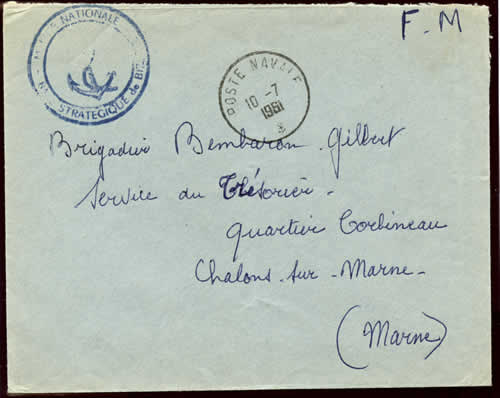 NATIONALE
STRATEGIQUE de
F.M
POSTE NAVALE
10 -7
1961
Brigadier Bembaron Gilbert
Service du Trésorier-
Quartier Corbineau
Chalons-sur-Marne-
(Marne)